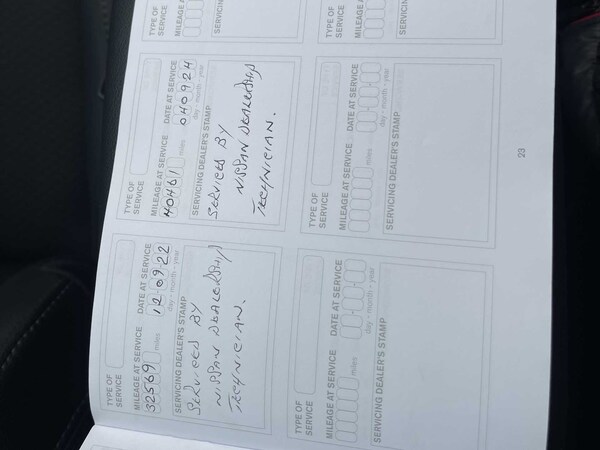 TYPE OF
SERVICE
MILEAGE AT SERVICE DATE AT SERVICE
32569 miles 12-09-22
day - month - year
SERVICING DEALER'S STAMP
SERVICED BY
NISSAN DEALERSHIP
TECHNICIAN.
TYPE OF
SERVICE
MILEAGE AT SERVICE DATE AT SERVICE
40461 miles 040924
day - month - year
SERVICING DEALER'S STAMP
SERVICED BY
NISSAN DEALERSHIP
TECHNICIAN.
TYPE OF
SERVICE
MILEAGE A
SERVICING
TYPE OF
SERVICE
MILEAGE AT SERVICE DATE AT SERVICE
miles
day - month - year
SERVICING DEALER'S STAMP
TYPE OF
SERVICE
MILEAGE AT SERVICE DATE AT SERVICE
miles
day - month - year
SERVICING DEALER'S STAMP
TYPE OF
SERVICE
MILEAGE A
SERVICING
23